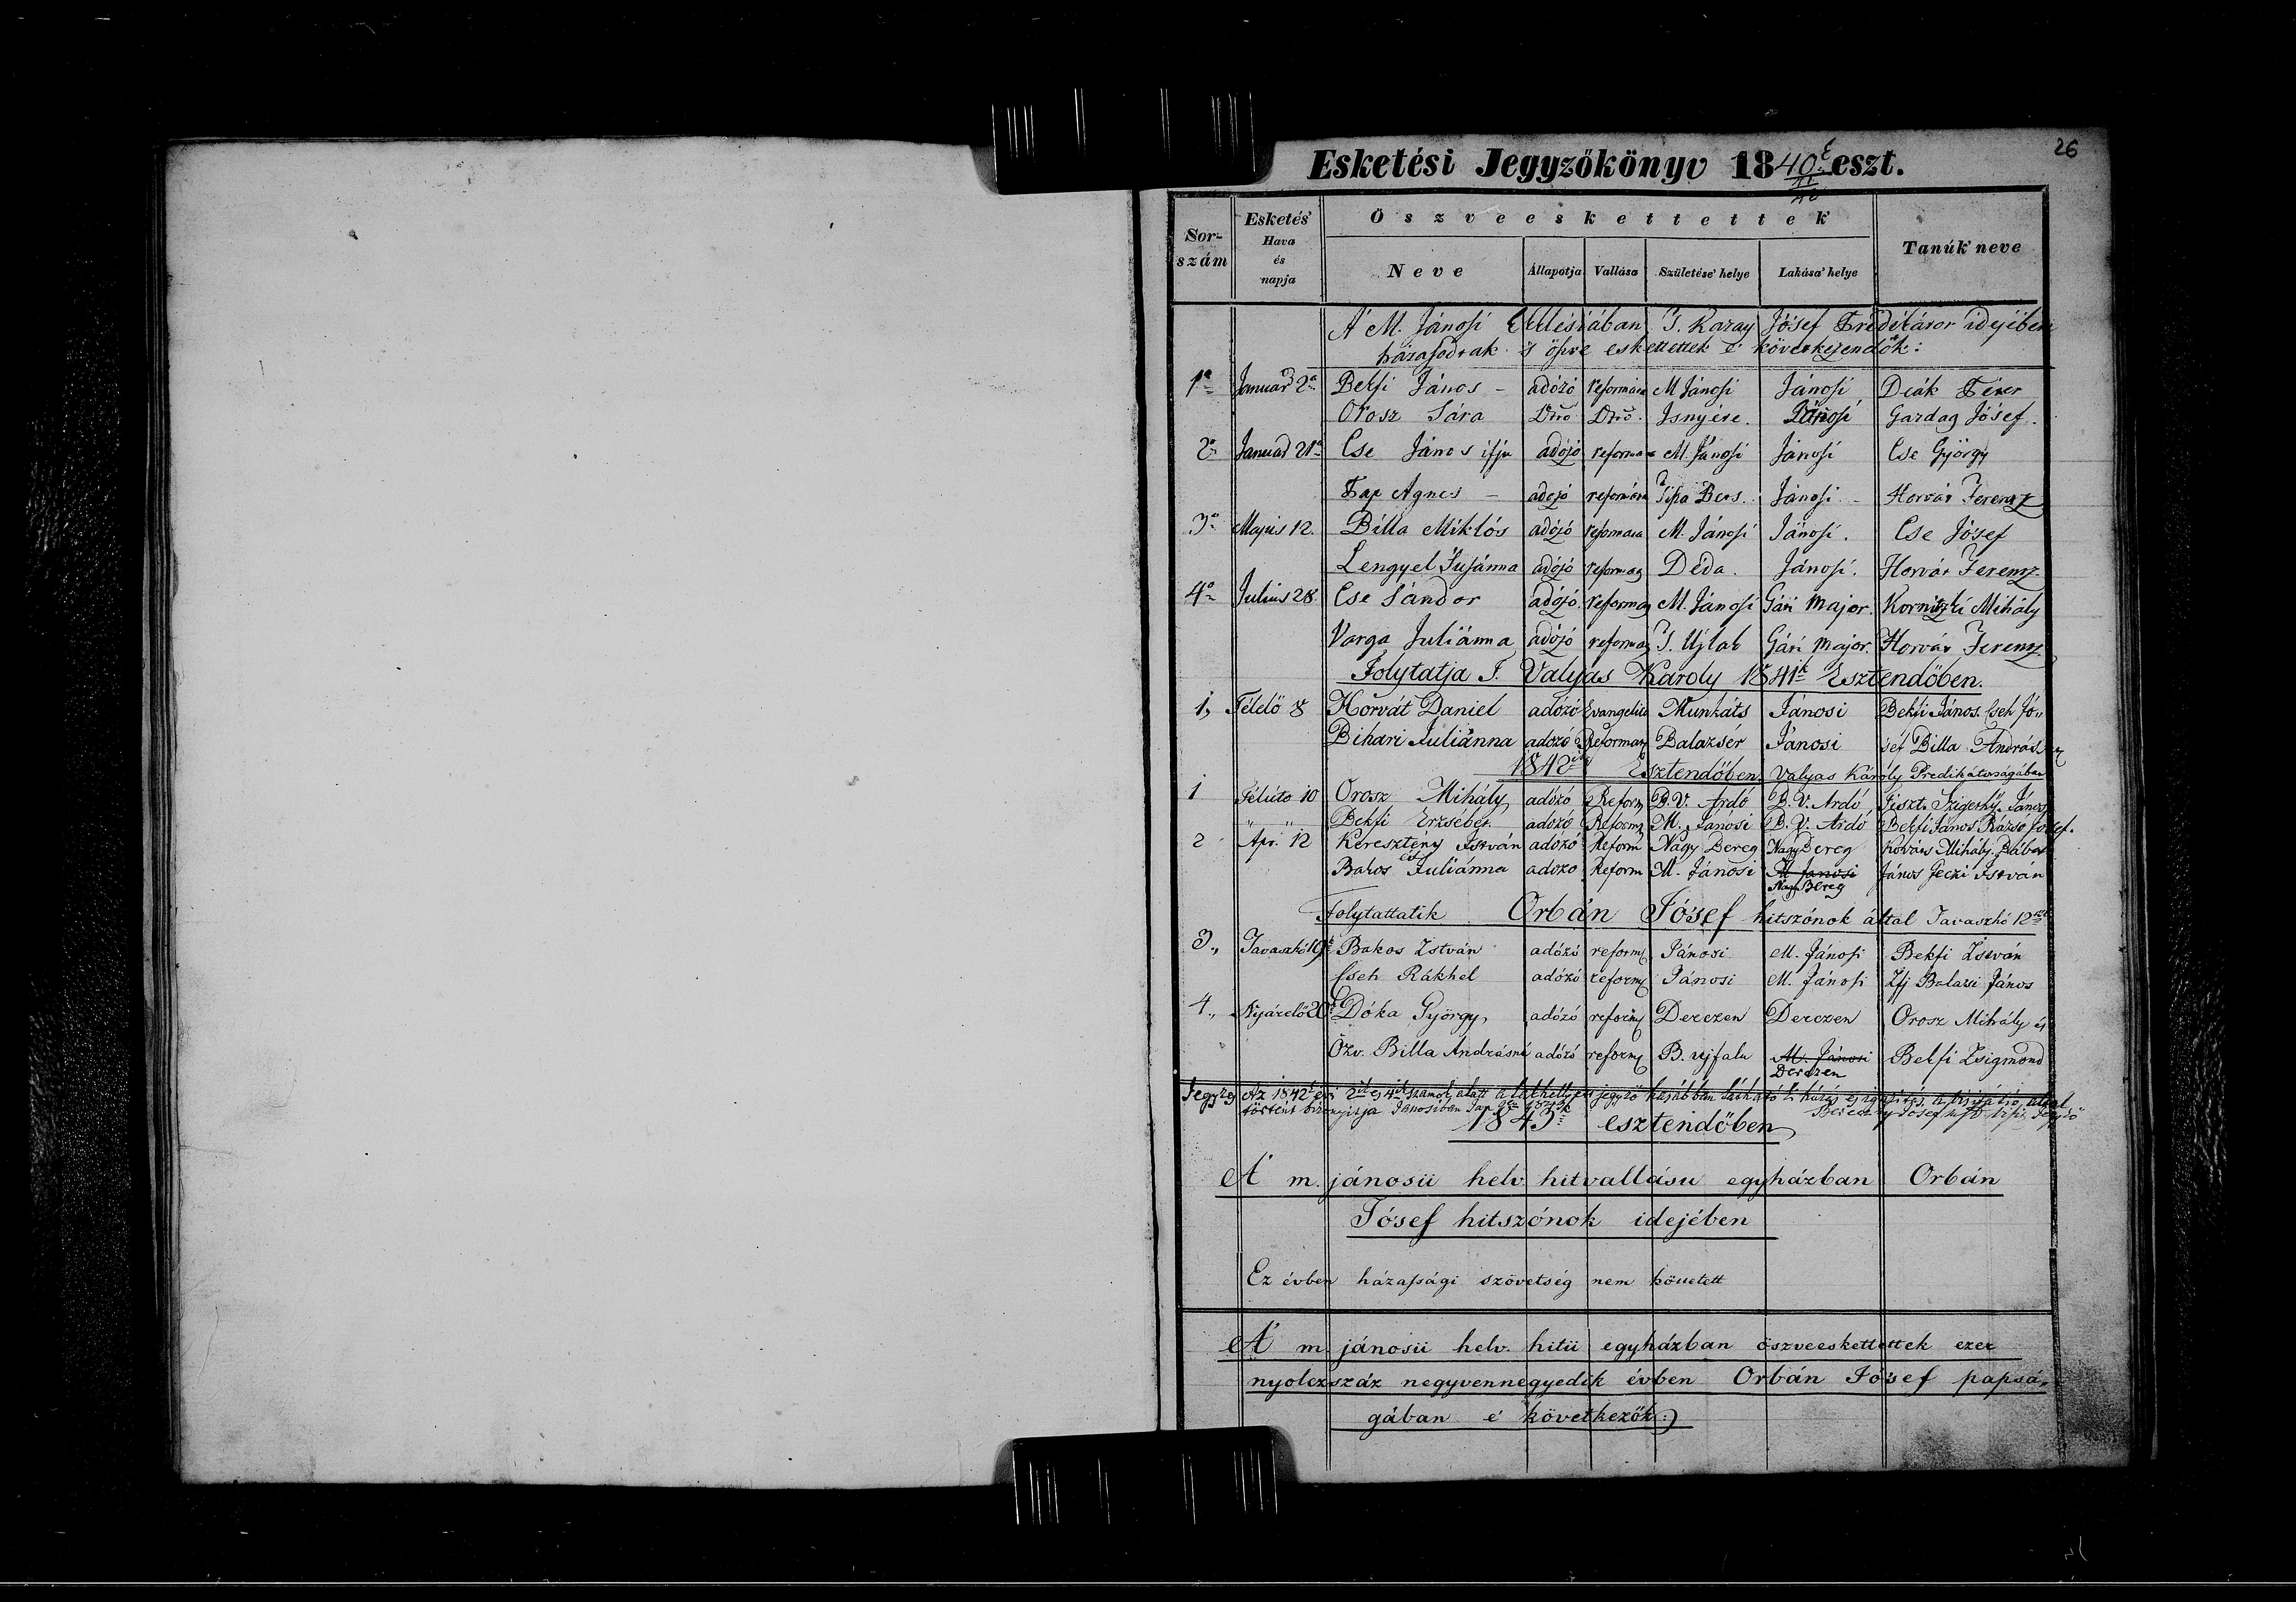 26
Esketési Jegyzőkönyv 1840 eszt.
Sor-szám
Esketés' Hava és napja
Öszveeskettettek
Neve
Állapotja
Vallása
Születése' helye
Lakása' helye
Tanúk' neve
A' M. Jánosi Eklésiában T. Kazay Jósef Prédikátor idejében
házasodtak 's öszve eskettettek e' következendők:
1a Januar 2a Bekfi János – adózó reformata M Jánosi Jánosi Deák Péter
Orosz Sára Dtto Dtto Isnyéte. Jánosi Gazdag Jósef.
2a Januar 21a Cse János ifju adózó reformata M. Jánosi Jánosi Cse György
Pap Agnes – adozó reformata Jánosi – Horvát Ferentz
3a Majus 12. Billa Miklós adózó reformata M. Jánosi Jánosi. Cse Jósef
Lengyel Susánna adózó reformata Déda. Jánosi. Horvát Ferentz.
4a Julius 28. Cse Sándor adózó reformata M. Jánosi Gáti Major. Mihály
Varga Juliánna adózó reformata T. Ujlak Gáti Major. Horvát Ferentz
Folytatja T. Valyas Karoly 1841k Esztendőben.
1, Télelő 8 Horvát Daniel adózó Evangelica Munkáts Jánosi Bekfi János. Cseh Jó„
Bihari Juliánna adózó Reformata Balazser Jánosi sef Billa András
1842ik Esztendőben. Valyas Károly Predikátorságában
1 Télúto 10 Orosz Mihály adózó Reform B. V. Ardó B. V. Ardó Tiszt. Szigethy János
„ „ Bekfi Erzsébet. adózó Reform M. Jánosi B. V. Ardó Bekfi János Jósef.
2 Apr. 12 Keresztény István adózó Reform Nagy Bereg Nagy Bereg Kovács Mihály.
és
Bakos Juliánna adozo Reform M. Jánosi M Janosi János István
Nagy Bereg
Folytattatik Orbán Jósef hitszónok által Tavaszhó 12
3„ Tavaszhó 19 Bakos István adózó reform Jánosi M. Jánosi Bekfi István
Cseh Rákhel adózó reform Jánosi M. Jánosi Ifj Balazsi János
4„ Nyárelő 20 Dóka György adózó reform Derczen Derczen Orosz Mihály és
Özv. Billa Andrásné adózó reform B. ujfalu M. Jánosi Bekfi Zsigmond
Derczen
Jegyzés Az 1842k évi 2ik 's 4ik számok alatt a
történt bizonyitja Jánosiban
1843k esztendőben
A' m. jánosii helv. hitvallásu egyházban Orbán
Jósef hitszónok idejében
Ez évben házassági szövetség nem köttetett
A' m jánosii helv. hitü egyházban öszveeskettettek ezer
nyolczszáz negyvennegyedik évben Orbán Jósef papsá„
gában e' következők:)